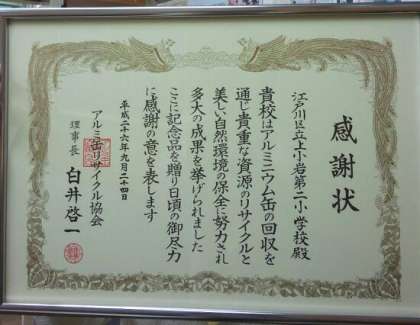 感謝状
江戸川区立上小岩第二小学校殿
貴校はアルミニウム缶の回収を
通じ貴重な資源のリサイクルと
美しい自然環境の保全に努力され
多大の成果を挙げられました
ここに記念品を贈り日頃の御尽力
に感謝の意を表します
平成二十六年九月二十四日
アルミ缶リサイクル協会
理事長 白井啓一